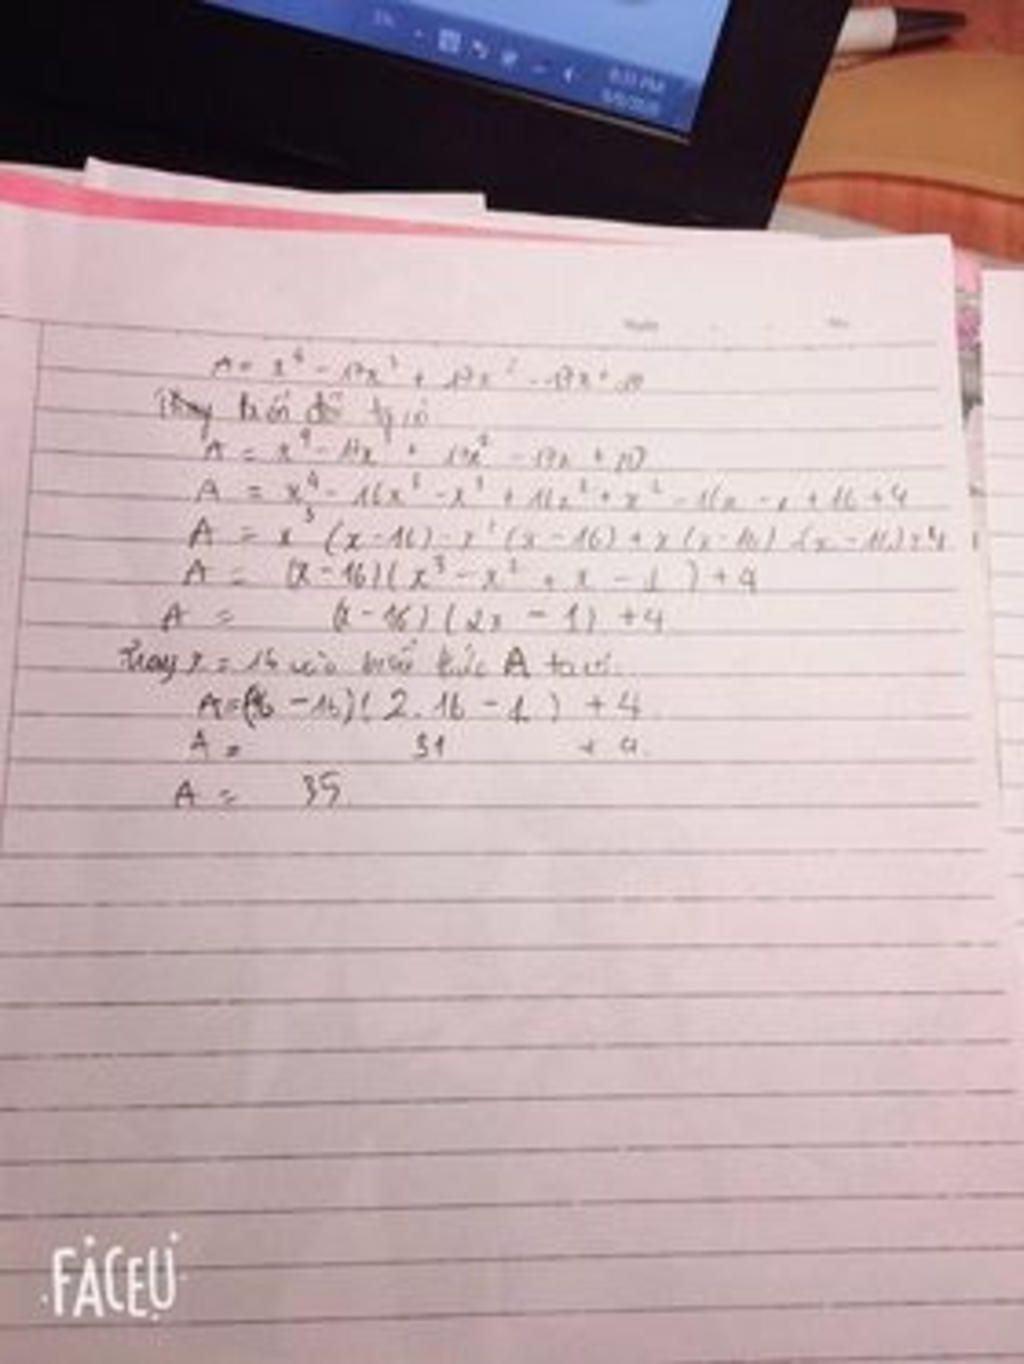 A = x⁴ - 17x³ + 17x² - 17x + 20
biến đổi ta có
A = x⁴ - 17x³ + 17x² - 17x + 20
A = x⁴ - 16x³ - x³ + 16x² + x² - 16x - x + 16 + 4
A = x³ (x - 16) - x² (x - 16) + x (x - 16) - (x - 16) + 4
A = (x - 16) (x³ - x² + x - 1) + 4
A = (x - 16) (2x - 1) + 4
Thay x = 16 vào biểu thức A ta có:
A = (16 - 16) (2.16 - 1) + 4
A = 31 + 4.
A = 35.
FACEU